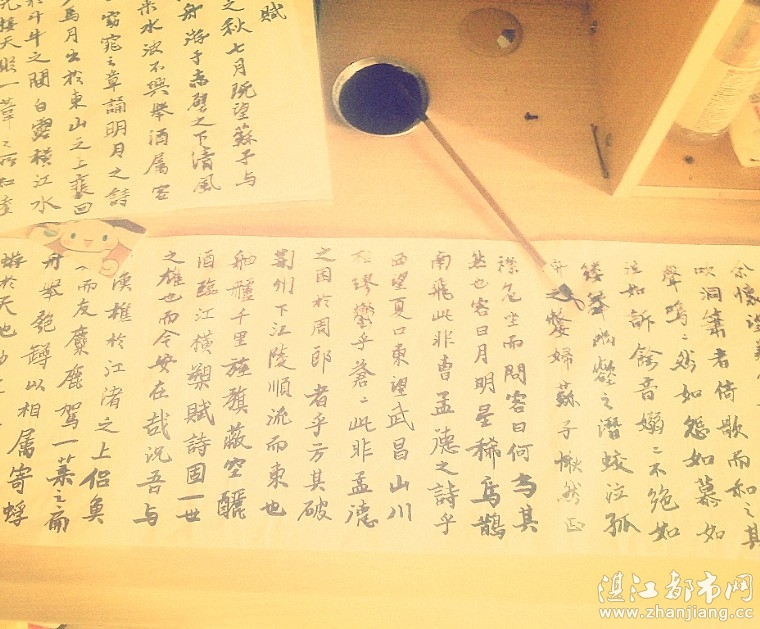 賦
之秋七月既望蘇子与
舟游于赤壁之下清風
來水波不興舉酒属客
窈窕之章誦明月之詩
焉月出於東山之上裵回
於斗牛之間白露橫江水
光接天縱一葦之所如
余懷望美
吹洞簫者倚歌而和之其
聲嗚々然如怨如慕如
泣如訴餘音嫋々不絕如
縷舞幽壑之潛蛟泣孤
舟之嫠婦蘇子愀然正
襟危坐而問客曰何為其
然也客曰月明星稀烏鵲
南飛此非曹孟德之詩乎
西望夏口東望武昌山川
相繆鬱乎蒼々此非孟德
之困於周郎者乎方其破
荊州下江陵順流而東也
舳艫千里旌旗蔽空釃
酒臨江橫槊賦詩固一世
之雄也而今安在哉況吾与
漁樵於江渚之上侶魚
而友麋鹿駕一葉之扁
舟舉匏罇以相属寄蜉
蝣於天地
湛江都市网
www.zhanjiang.cc